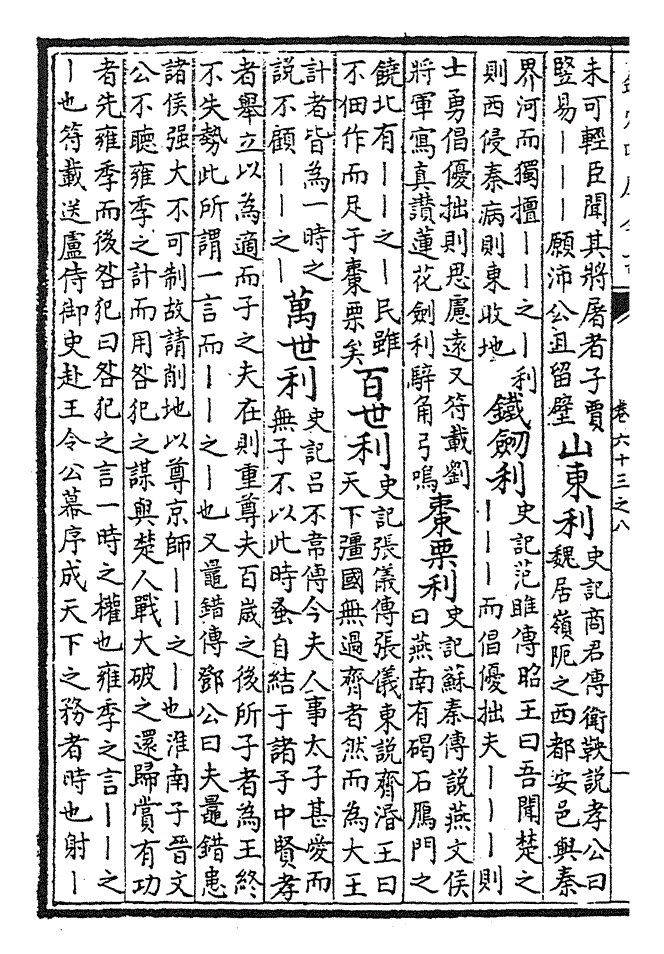 卷六十三之八
一
未可輕臣聞其將屠者子賈
豎易丨丨丨願沛公且留壁
山東利
史記商君傳衛鞅説孝公曰
魏居嶺阨之西都安邑與秦
界河而獨擅丨丨之丨利
則西侵秦病則東收地
鐵劒利
史記范雎傳昭王曰吾聞楚之
丨丨丨而倡優拙夫丨丨丨則
士勇倡優拙則思慮遠又符載劉
將軍寫真讃蓮花劍利騂角弓鳴
棗栗利
史記蘇秦傳説燕文侯
曰燕南有碣石鴈門之
饒北有丨丨之丨民雖
不佃作而足于棗栗矣
百世利
史記張儀傳張儀東説齊湣王曰
天下彊國無過齊者然而為大王
計者皆為一時之
説不顧丨丨之丨
萬世利
史記呂不韋傳今夫人事太子甚愛而
無子不以此時蚤自結于諸子中賢孝
者舉立以為適而子之夫在則重尊夫百歲之後所子者為王終
不失勢此所謂一言而丨丨之丨也又鼂錯傳鄧公曰夫鼂錯患
諸侯强大不可制故請削地以尊京師丨丨之丨也淮南子晉文
公不聽雍季之計而用咎犯之謀與楚人戰大破之還歸賞有功
者先雍季而後咎犯曰咎犯之言一時之權也雍季之言丨丨之
丨也符載送盧侍御史赴王令公幕序成天下之務者時也射丨